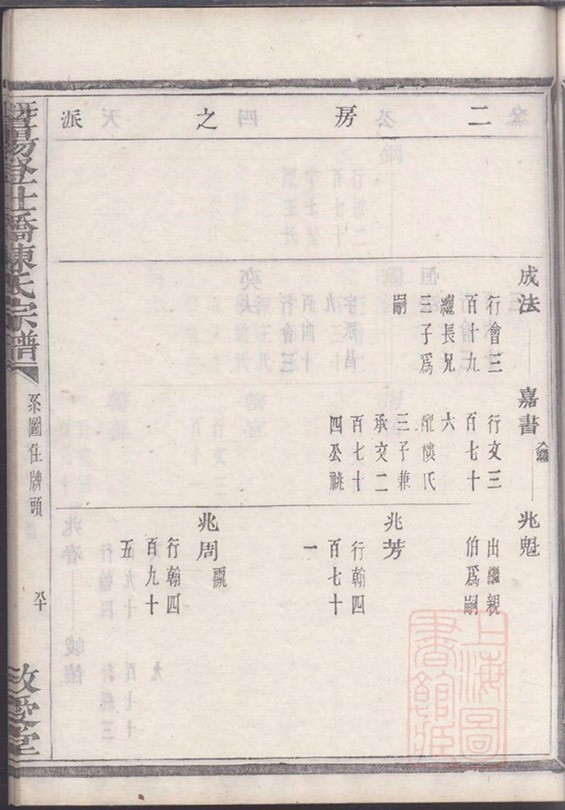 二房之派
成法
行會三
百十九
繼長兄
三子爲
嗣
嘉書
行文三
百七十
六
配樓氏
三子兼
承文二
百七十
四公祧
兆魁
出繼親
伯爲嗣
兆芳
行翰四
百七十
一
兆周
行翰四
百九十
五
暨陽登仕橋陳氏宗譜
系圖住牌頭
敬愛堂
上海圖
書館藏